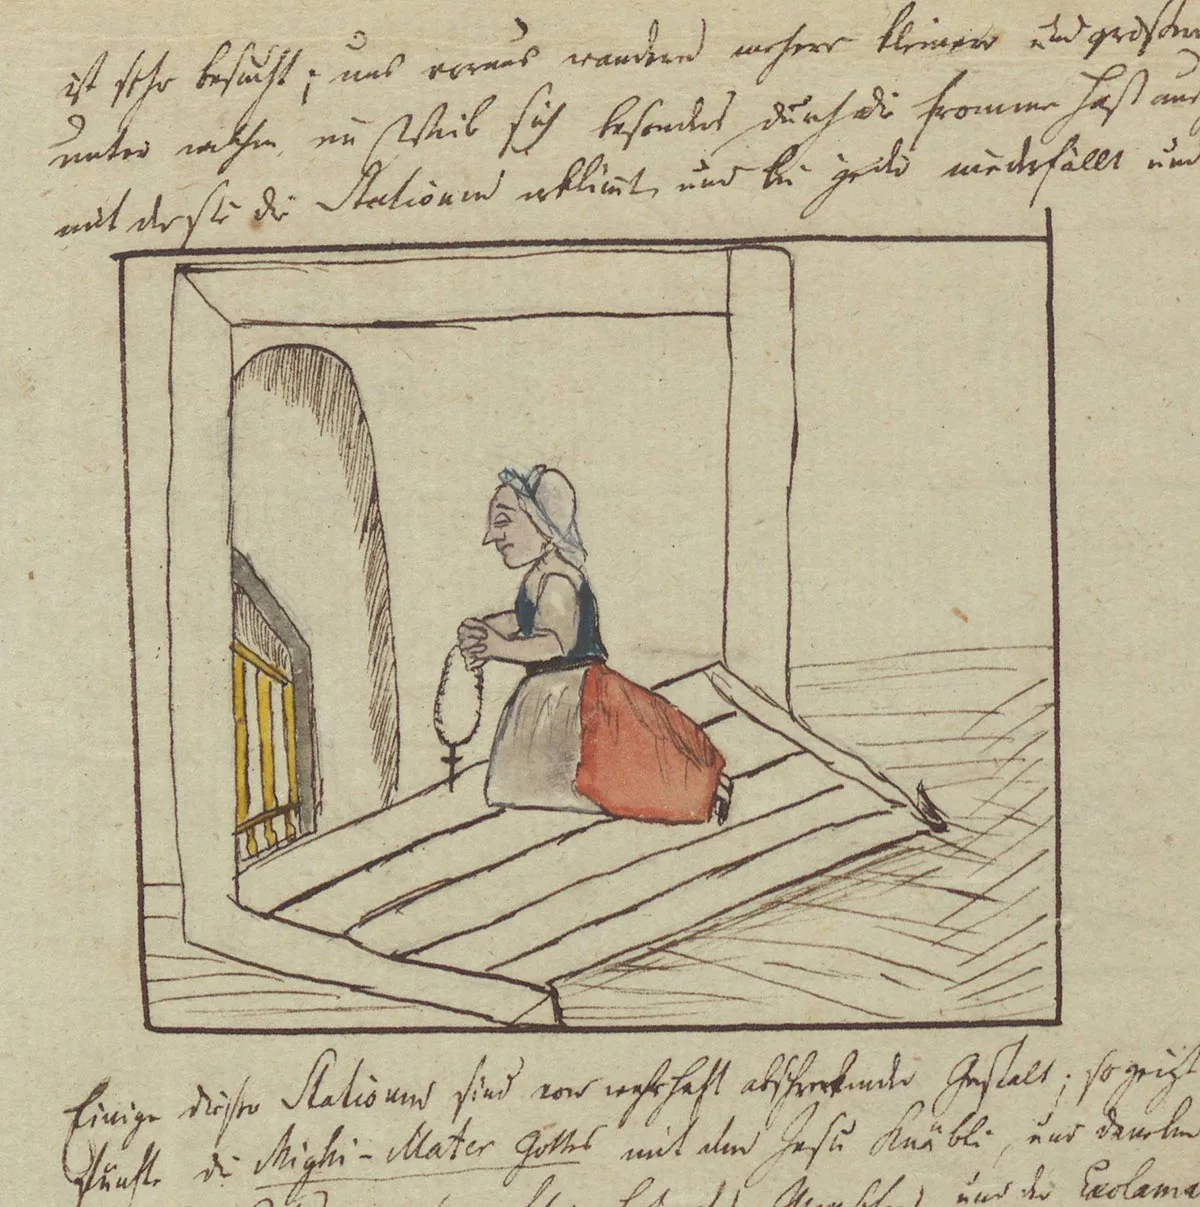 ist sehr besucht; uns voraus wandern mehrere kleinere und größere
unter welchen ein Weib sich besonders durch die fromme Hast aus
mit der sie die Stationen erklimt, und bei jeder niederfällt und
Einige dieser Stationen sind von wahrhaft abschrekender Gestalt; so zeigt
fünfte die Mighi-Mater Gottes mit dem Jesu Knäbli, und daneben
und die Exclama